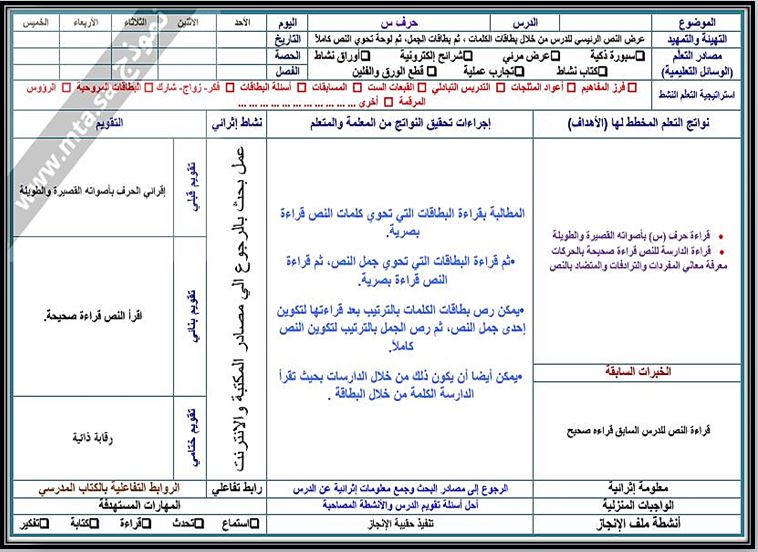 الموضوع
الدرس
حرف س
اليوم
الأحد
الاثنين
الثلاثاء
الأربعاء
الخميس
التهيئة والتمهيد
عرض النص الرئيسي للدرس من خلال بطاقات الكلمات ، ثم بطاقات الجمل، ثم لوحة تحوي النص كاملاً
التاريخ
مصادر التعلم
(الوسائل التعليمية)
سبورة ذكية □عرض مرئي □شرائح إلكترونية □أوراق نشاط□
الحصة
□كتاب نشاط □تجارب عملية □ قطع الورق والفلين
الفصل
استراتيجية التعلم النشط
□ فرز المفاهيم □ أعواد المثلجات □ التدريس التبادلي □ القبعات الست □ المسابقات □ أسئلة البطاقات □ فكر- زواج- شارك □ البطاقات المروحية □ الرؤوس
المرقمة □ أخرى ... ... ... ... ... ... ... ... ... ... ... ... ... ... ...
نواتج التعلم المخطط لها (الأهداف)
إجراءات تحقيق النواتج من المعلمة والمتعلم
نشاط إثرائي
التقويم
• قراءة حرف (س) بأصواته القصيرة والطويلة
• قراءة الدارسة للنص قراءة صحيحة بالحركات
معرفة معاني المفردات والترادفات والمتضاد بالنص
الخبرات السابقة
قراءة النص للدرس السابق قراءه صحيح
المطالبة بقراءة البطاقات التي تحوي كلمات النص قراءة
بصرية.
•ثم قراءة البطاقات التي تحوي جمل النص، ثم قراءة
النص قراءة بصرية.
•يمكن رص بطاقات الكلمات بالترتيب بعد قراءتها لتكوين
إحدى جمل النص، ثم رص الجمل بالترتيب لتكوين النص
كاملاً.
•يمكن أيضا أن يكون ذلك من خلال الدارسات بحيث تقرأ
الدارسة الكلمة من خلال البطاقة .
عمل بحث بالرجوع الي مصادر المكتبة والانترنت
تقويم قبلي
إقرائي الحرف بأصواته القصيرة والطويلة
تقويم بنائي
اقرأ النص قراءة صحيحة.
تقويم ختامي
رقابة ذاتية
معلومة إثرائية
الرجوع إلى مصادر البحث وجمع معلومات إثرائية عن الدرس
رابط تفاعلي
الروابط التفاعلية بالكتاب المدرسي
الواجبات المنزلية
أحل أسئلة تقويم الدرس والأنشطة المصاحبة
المهارات المستهدفة
أنشطة ملف الإنجاز
تنفيذ حقيبة الإنجاز
□استماع □تحدث □قراءة □كتابة □تفكير
نموذج www.mta.sa